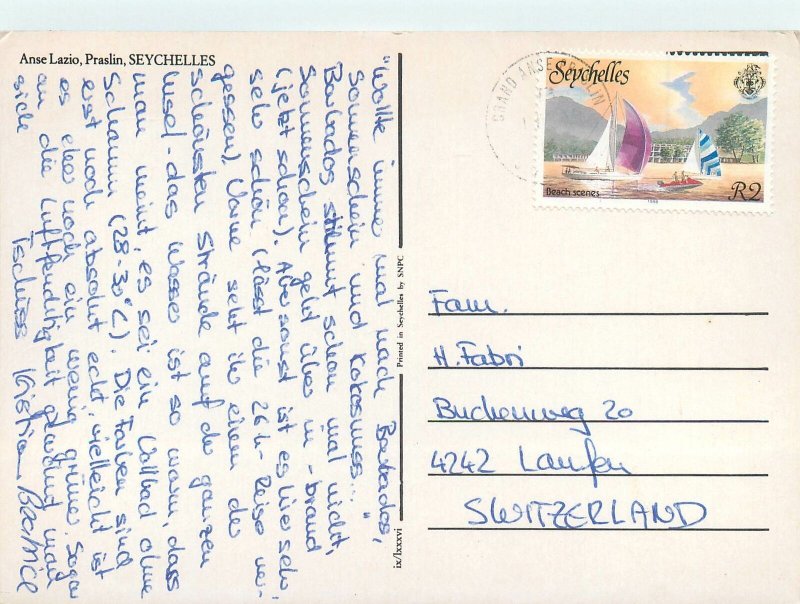 Anse Lazio, Praslin, SEYCHELLES
"Wollte immer mal nach Barbados,
Sonnenschein und Kokosnuss..."
Barbados stimmt schon mal nicht,
Sonnenschein geht über in -brand
(jetzt schon). Aber sonst ist es hier sehr
sehr schön (lässt die 26 h-Reise ver-
gessen). Vorne seht ihr einen der
schönsten Strände auf der ganzen
Insel - das Wasser ist so warm, dass
man meint, es sei ein Vollbad ohne
Schaumm (28-30°C). Die Farben sind
erst noch absolut echt, vielleicht ist
es eher noch ein wenig grüner. Sogar
an die Luftfeuchtigkeit gewöhnt man
sich
Tschüss Kristian Beatrice
Printed in Seychelles by SNPC
ix/lxxxvi
GRAND ANSE PRASLIN
Seychelles
Beach scenes
1988
R2
Fam.
H. Fabri
Buchenweg 20
4242 Laufen
SWITZERLAND